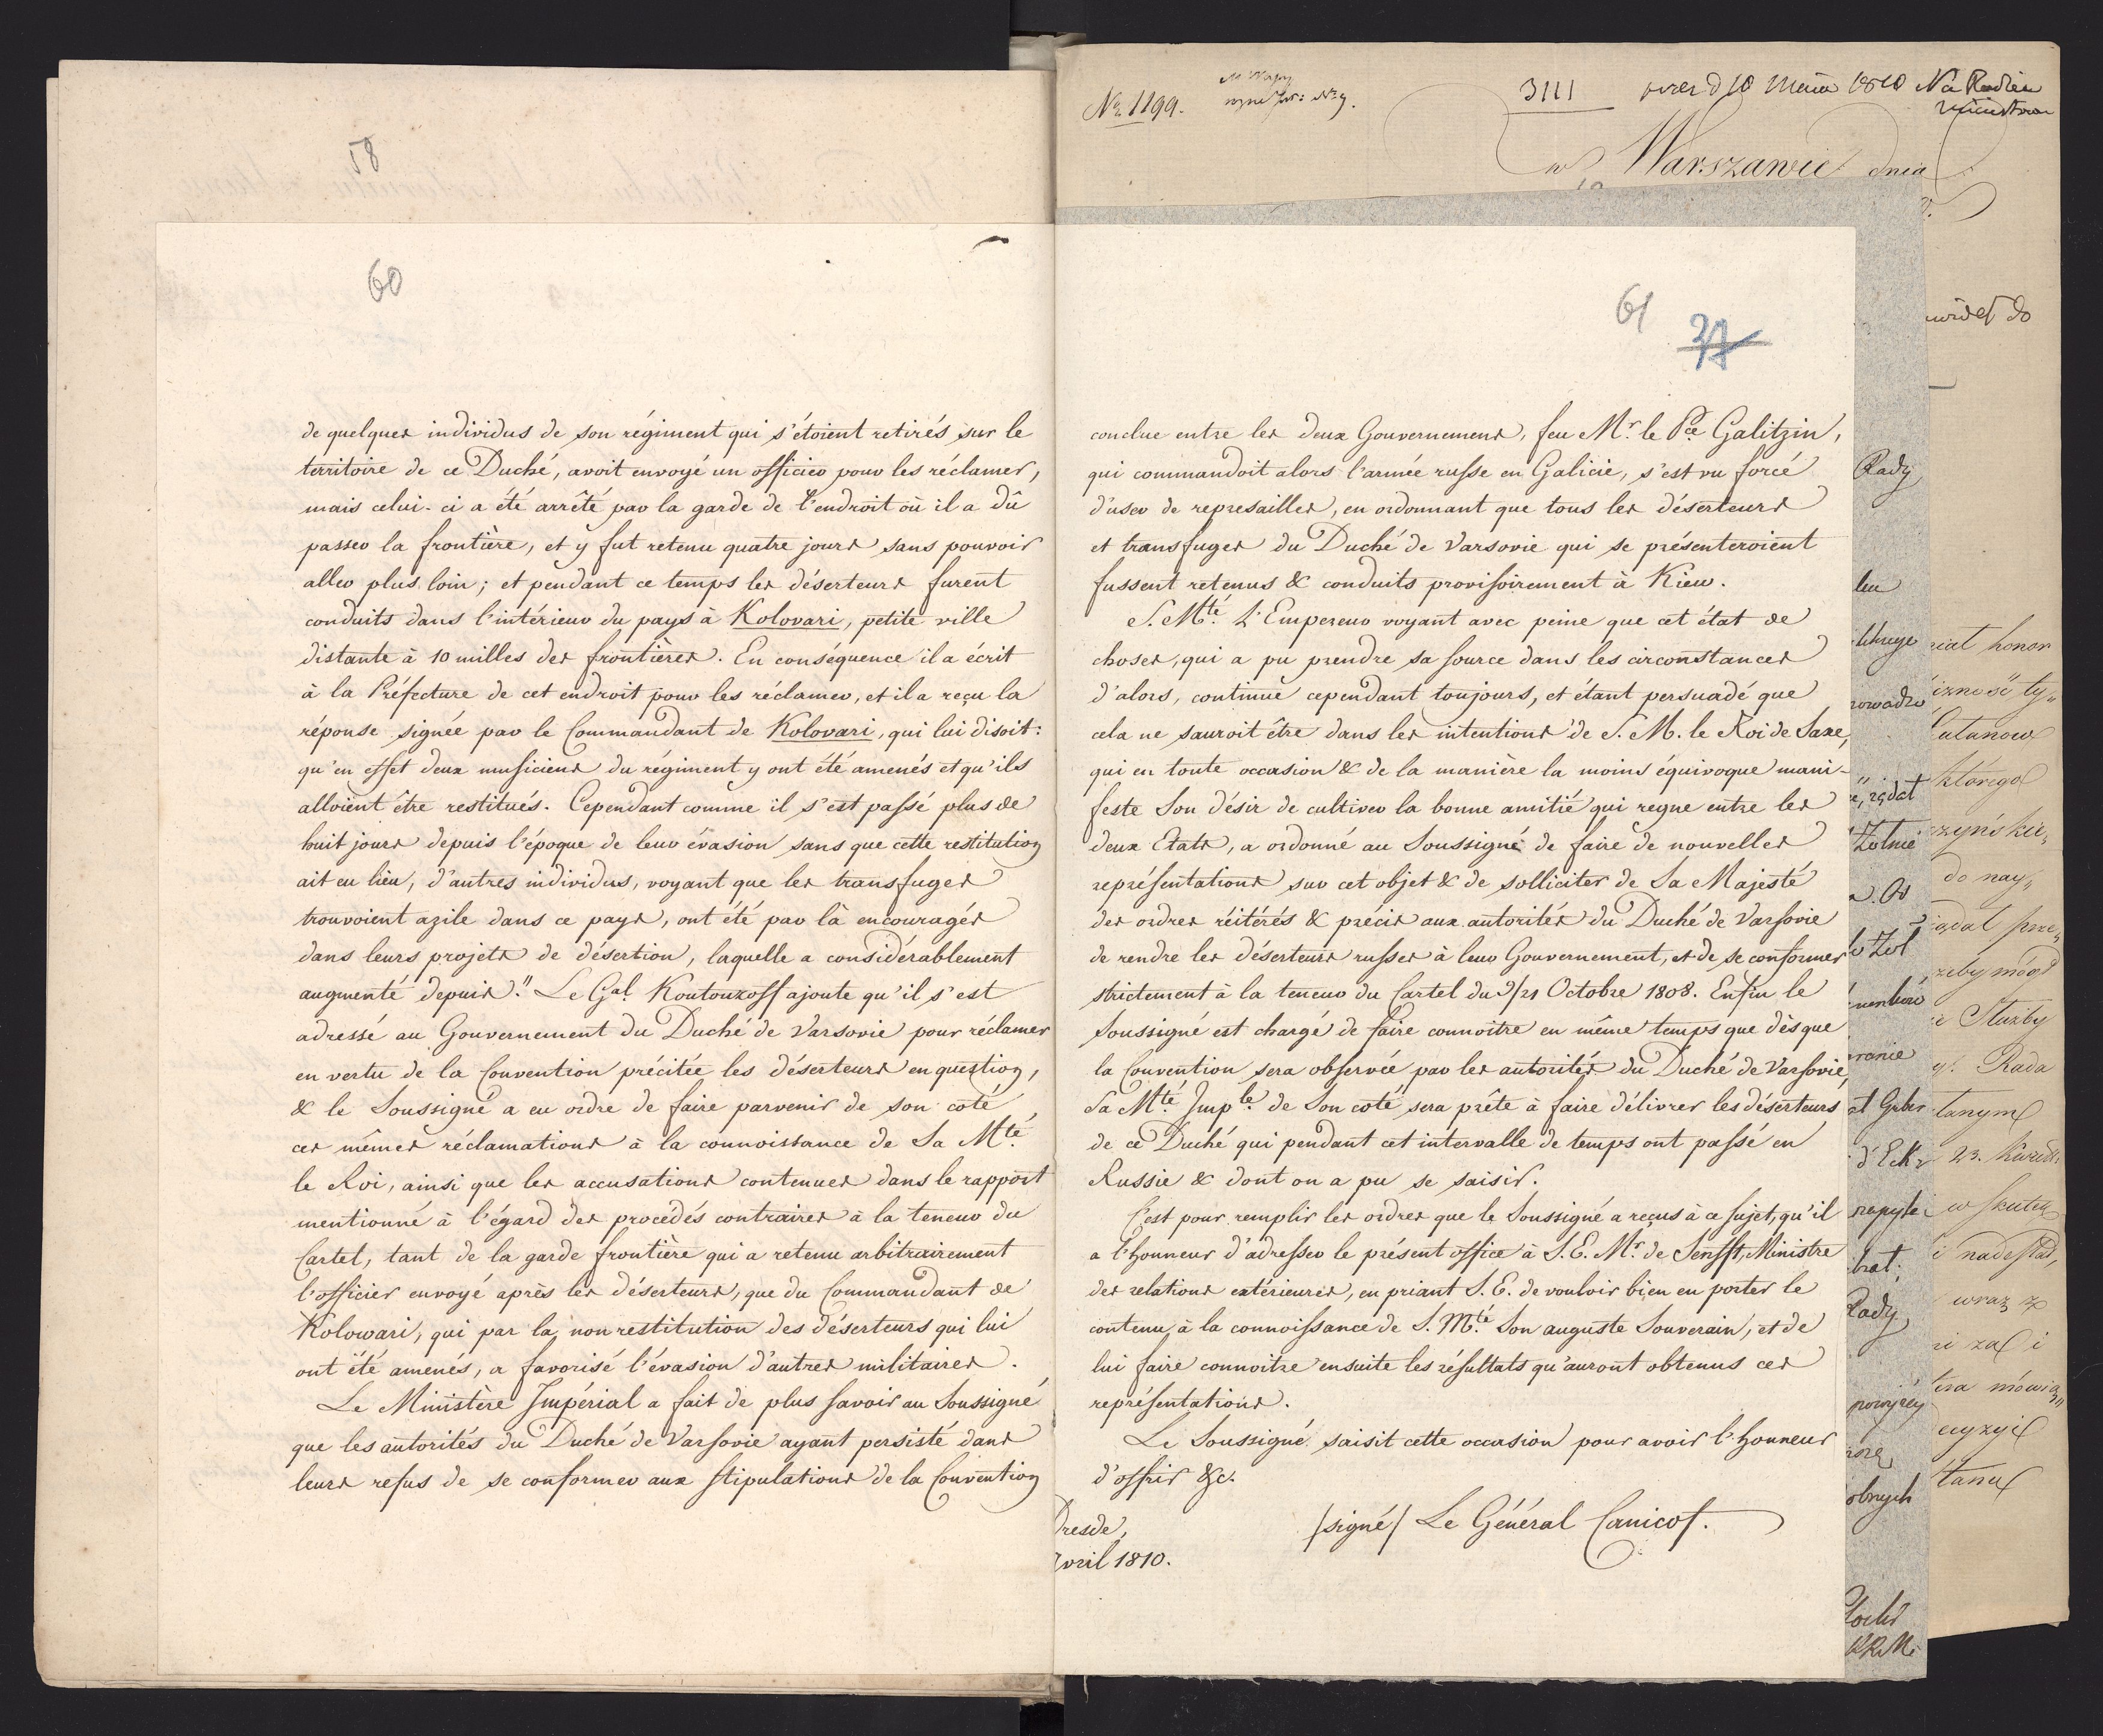 58
60
de quelques individus de son régiment qui s'étoient retirés sur le
territoire de ce Duché, avoit envoyé un officier pour les réclamer,
mais celui-ci a été arrêté par la garde de l'endroit où il a dû
passer la frontière, et y fut retenu quatre jours sans pouvoir
aller plus loin; et pendant ce temps les déserteurs furent
conduits dans l'intérieur du pays à Kolovari, petite ville
distante à 10 milles des frontières. En conséquence il a écrit
à la Préfecture de cet endroit pour les réclamer, et il a reçu la
réponse signée par le Commandant de Kolovari, qui lui disoit:
qu'en effet deux musiciens du régiment y ont été amenés et qu'ils
alloient être restitués. Cependant comme il s'est passé plus de
huit jours depuis l'époque de leur évasion sans que cette restitution
ait eu lieu, d'autres individus, voyant que les transfuges
trouvoient azile dans ce pays, ont été par là encouragés
dans leurs projets de désertion, laquelle a considérablement
augmenté depuis." Le Gal. Koutouzoff ajoute qu'il s'est
adressé au Gouvernement du Duché de Varsovie pour réclamer
en vertu de la Convention précitée les déserteurs en question,
& le Soussigné a eu ordre de faire parvenir de son coté
ces mêmes réclamations à la connoissance de Sa Mté.
le Roi, ainsi que les accusations contenues dans le rapport
mentionné à l'égard des procédés contraires à la teneur du
Cartel, tant de la garde frontière qui a retenu arbitrairement
l'officier envoyé après les déserteurs, que du Commandant de
Kolowari, qui par la non restitution des déserteurs qui lui
ont été amenés, a favorisé l'évasion d'autres militaires.
Le Ministère Impérial a fait de plus savoir au Soussigné
que les autorités du Duché de Varsovie ayant persisté dans
leurs refus de se conformer aux stipulations de la Convention
No. 1199.
3111
10 1810 Na
w Warszawie dnia
61
37
conclue entre les deux Gouvernemens, feu Mr. le Pce Galitzin,
qui commandoit alors l'armée russe en Galicie, s'est vu forcé
d'user de represailles, en ordonnant que tous les déserteurs
et transfuges du Duché de Varsovie qui se présenteroient
fussent retenus & conduits provisoirement à Kiew.
S. Mté. L'Empereur voyant avec peine que cet état de
choses, qui a pu prendre sa source dans les circonstances
d'alors, continue cependant toujours, et étant persuadé que
cela ne sauroit être dans les intentions de S. M. le Roi de Saxe,
qui en toute occasion & de la manière la moins équivoque mani-
feste Son désir de cultiver la bonne amitié qui regne entre les
deux Etats, a ordonné au Soussigné de faire de nouvelles
représentations sur cet objet & de solliciter de Sa Majesté
des ordres réitérés & précis aux autorités du Duché de Varsovie
de rendre les déserteurs russes à leur Gouvernement, et de se conformer
strictement à la teneur du Cartel du 9/21 Octobre 1808. Enfin le
Soussigné est chargé de faire connoitre en même temps que dès que
la Convention sera observée par les autorités du Duché de Varsovie,
Sa Mté. Imple. de Son coté sera prête à faire délivrer les déserteurs
de ce Duché qui pendant cet intervalle de temps ont passé en
Russie & dont on a pu se saisir.
C'est pour remplir les ordres que le Soussigné a reçus à ce sujet, qu'il
a l'honneur d'adresser le présent office à S. E. Mr. de Senfft, Ministre
des relations extérieures, en priant S. E. de vouloir bien en porter le
contenu à la connoissance de S. Mté. Son auguste Souverain, et de
lui faire connoitre ensuite les résultats qu'auront obtenus ces
représentations.
Le Soussigné saisit cette occasion pour avoir l'honneur
d'offrir &c.
/signé/ Le Général Canicof.
Dresde,
Avril 1810.
Rady
Rady
do
honor
któregol
do nay
Służby
Rada
wraz z